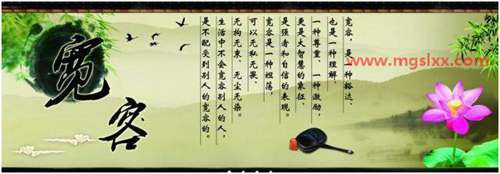 宽容
宽容，是一种豁达、
也是一种理解、
一种尊重、一种激励，
更是大智慧的象征、
是强者和自信的表现。
宽容是一种坦荡，
可以无私无畏、
无拘无束、无尘无染。
生活中不会宽容别人的人，
是不配受到别人的宽容的。
www.mgslxx.com